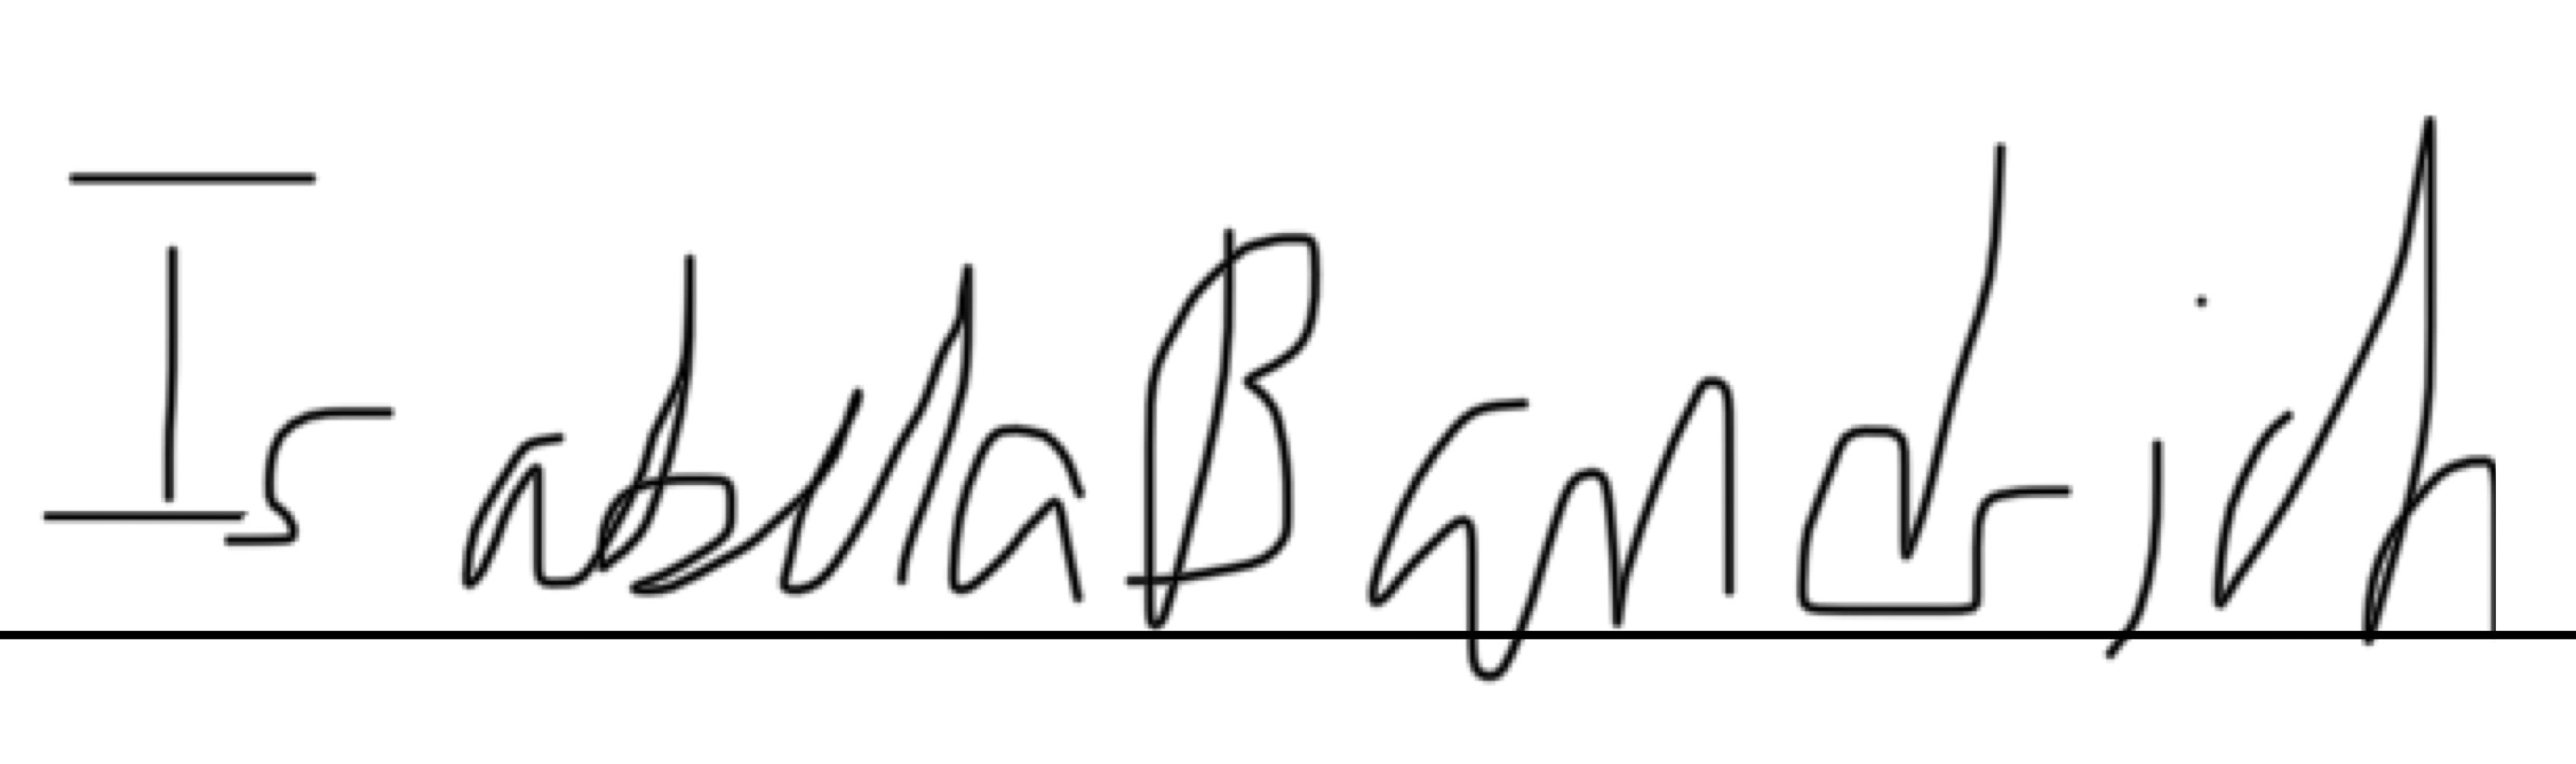 Isabella Bandrich